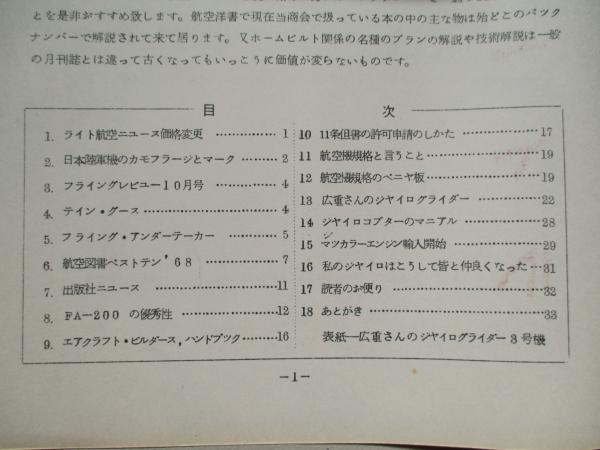 とを是非おすすめ致します。航空洋書で現在当商会で扱っている本の中の主な物は殆どこのバック
ナンバーで解説されて来て居ります。又ホームビルト関係の各種のプランの解説や技術解説は一般
の月刊誌とは違って古くなってもいっこうに価値が変らないものです。
目 次
1. ライト航空ニュース価格変更 …………… 1
2. 日本陸軍機のカモフラージとマーク ……… 2
3. フライングレビユー10月号 ……………… 4
4. テイン・グース ……………………… 4
5. フライング・アンダーテーカー ………… 5
6. 航空図書ベストテン’68 ……………… 7
7. 出版社ニユース ……………………11
8. FA－200の優秀性 …………………12
9. エアクラフト・ビルダース，ハンドブツク ………16
10 11条但書の許可申請のしかた ……………17
11 航空機規格と言うこと ……………………19
12 航空機規格のベニヤ板 ……………………19
13 広重さんのジヤイログライダー …………22
14 ジヤイロコプターのマニアル ……………28
15 マツカラーエンジン輸入開始 ……………29
16 私のジヤイロはこうして皆と仲良くなった …31
17 読者のお便り ……………………………32
18 あとがき …………………………………33
表紙－広重さんのジヤイログライダー3号機
－1－